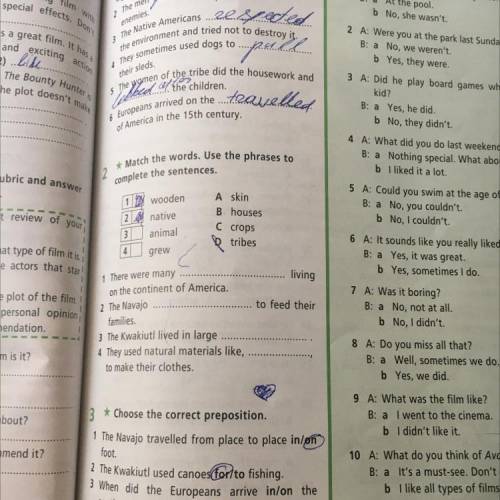 ing film with
special effects. Don't
s a great film. It has a
and exciting action
2) like
The Bounty Hunter is
he plot doesn't make
ubric and answer
t review of your
at type of film it is
e actors that star
e plot of the film.
personal opinion
mendation.
m is it?
about?
mmend it?
2 The men
enemies.
3 The Native Americans respected
the environment and tried not to destroy it.
4 They sometimes used dogs to pull
their sleds.
5 The women of the tribe did the housework and
looked after the children.
6 Europeans arrived on the travelled
of America in the 15th century.
2 * Match the words. Use the phrases to
complete the sentences.
1 D wooden A skin
2 native B houses
3 animal C crops
4 grew D tribes
1 There were many .................... living
on the continent of America.
2 The Navajo .................... to feed their
families.
3 The Kwakiutl lived in large ....................
4 They used natural materials like, ....................,
to make their clothes.
3 * Choose the correct preposition.
1 The Navajo travelled from place to place in/on
foot.
2 The Kwakiutl used canoes for/to fishing.
3 When did the Europeans arrive in/on the
a At the pool.
b No, she wasn't.
2 A: Were you at the park last Sunda
B: a No, we weren't.
b Yes, they were.
3 A: Did he play board games wh
kid?
B: a Yes, he did.
b No, they didn't.
4 A: What did you do last weekend
B: a Nothing special. What abou
b I liked it a lot.
5 A: Could you swim at the age of
B: a No, you couldn't.
b No, I couldn't.
6 A: It sounds like you really liked
B: a Yes, it was great.
b Yes, sometimes I do.
7 A: Was it boring?
B: a No, not at all.
b No, I didn't.
8 A: Do you miss all that?
B: a Well, sometimes we do.
b Yes, we did.
9 A: What was the film like?
B: a I went to the cinema.
b I didn't like it.
10 A: What do you think of Ava
B: a It's a must-see. Don't
b I like all types of films